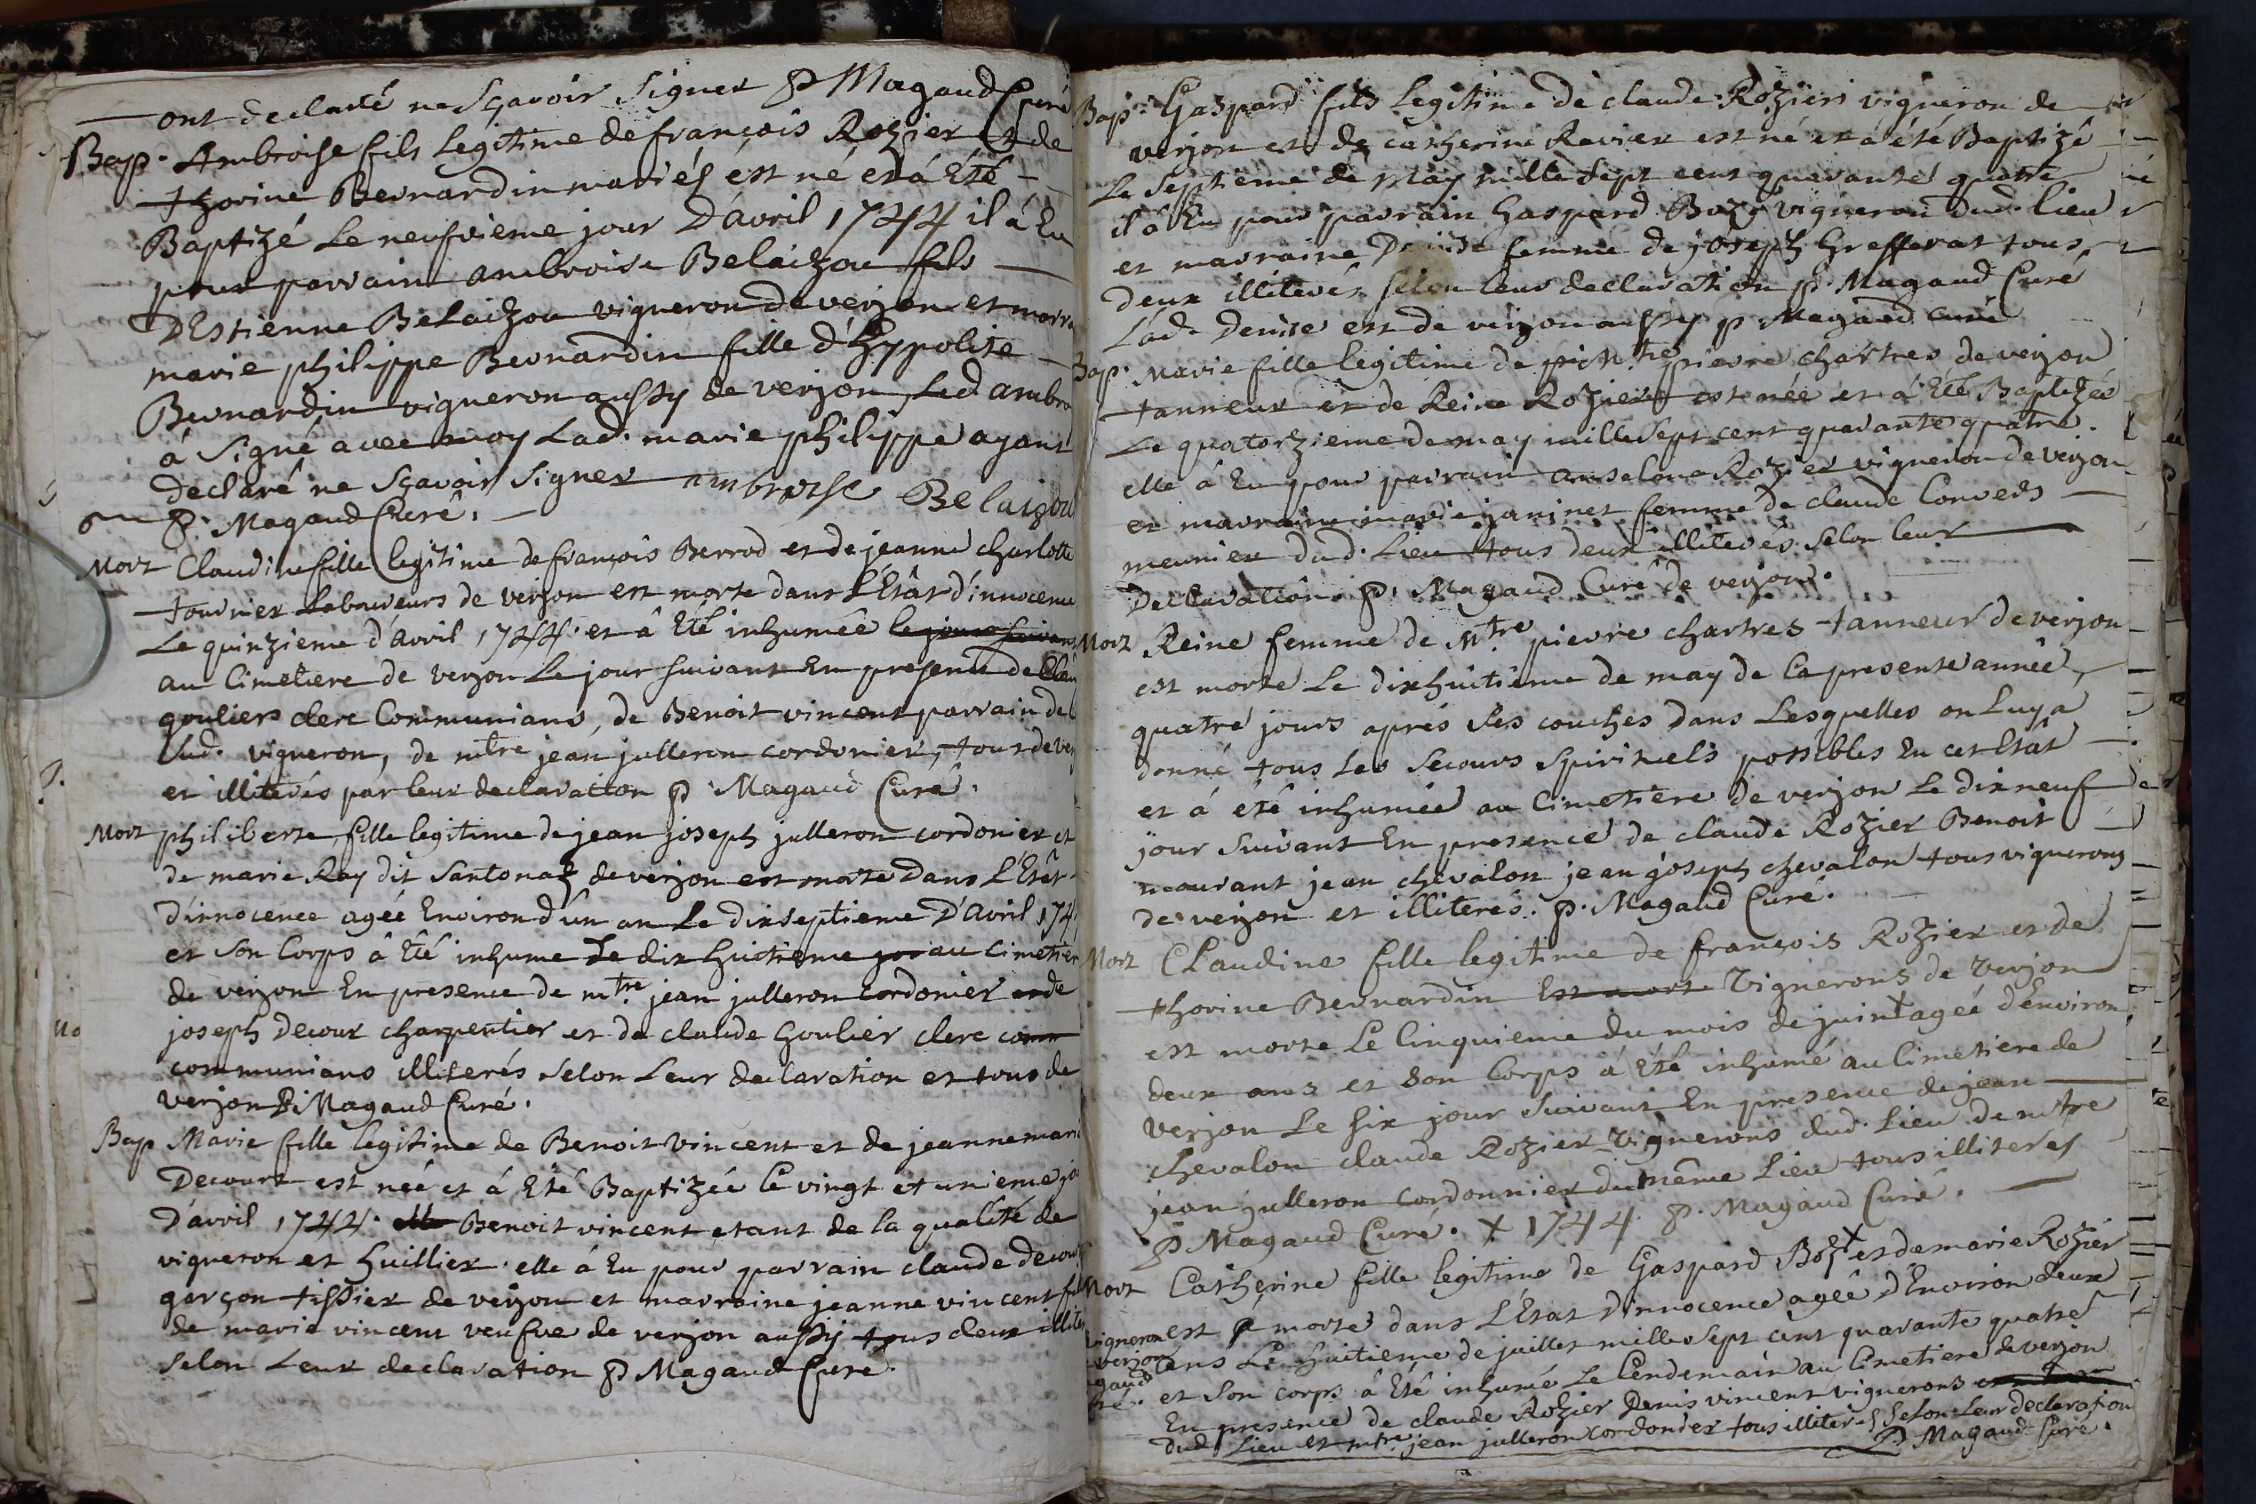 ont declaré ne Sçavoir Signer P Magaud Curé
Bap. Ambroise fils legitime de françois Rozier et de
thorine Bernardin mariés est né et á Eté
Baptizé Le neufvieme jour D'avril 1744 il á Eu
pour parrain ambroise Belaizou fils
D'Estienne Belaizou vigneron de verjon et marr
marie philippe Bernardin fille d'hypolite
Bernardin vigneron aussy de verjon, Led ambro
á signé avec moy Lad. marie philippe ayant
declaré ne Sçavoir Signer ambroise Belaizou
P. Magaud Curé.
Mort Claudine fille legitime de françois Berrod et de jeanne charlotte
tournier Laboureurs de verjon est morte dans L'Etât d'innocence
Le quinzieme d'avril 1744. et â Eté inhumée le jour suivant
au Cimetiere de verjon Le jour suivant En presence de Clau
gouliers clerc Communians, de Benoit vincent parrain de
Lad. vigneron, de mtre jean julleron cordonier, tous de ver
et illiterés par leur declaration P. Magaud Curé.
Mort philiberte fille legitime de jean joseph julleron cordonier et
de marie Ray dit Santonaz de verjon est morte Dans L'Etât
d'innocence agée Environ d'un an Le dix septieme D'avril 174
et son Corps â Eté inhume Le dix huitieme au Cimetier
de verjon En presence de mtre jean julleron cordonier et de
joseph decour charpentier et de claude Goulier clerc comm
communians illiterés selon Leur declaration et tous de
verjon P. Magaud Curé.
Bap Marie fille legitime de Benoit vincent et de jeanne mari
Decourt est née et á Eté Baptizée le vingt et unieme jo
D'avril 1744. elle Benoit vincent etant de la qualité de
vigneron et huillier. elle á Eu pour parrain claude decour
garçon tissier de verjon et marraine jeanne vincent fil
de marie vincent veufve de verjon aussy tous deux illite
selon Leur declaration P Magaud Curé.
Bap. Gaspard fils legitime de claude Roziers vigneron de
verjon et de catherine Ravier est né et á été Baptizé
Le Septieme de May mille Sept cent quarante quatre
il â Eu pour parrain Gaspard Bozy vigneron dud. lieu
et marraine Denise femme de joseph Grefferat tous
deux illiterés selon leur declaration P. Magaud Curé
Lad. Denise est de verjon aussy P. Magaud curé
Bap. Marie fille legitime de Mtre pierre chartres de verjon
tanneur et de Reine Rozier est née et á Eté Baptizée
Le quatorzieme de may mille Sept cent quarante quatre.
elle á Eu pour parrain anselme Rozier vigneron de verjon
et marraine marie janinet femme de claude Convers
meunier dud. Lieu tous deux illiterés selon leur
Declaration. P. Magaud Curé de verjon.
Mort Reine femme de Mtre pierre chartres tanneur de verjon
est morte Le dixhuitieme de may de la presente année,
quatre jours aprés ses couches dans Lesquelles on Luy a
donné tous Les Secours Spirituels possibles En cet Etat
et á été inhumée au Cimetiere de verjon Le dix neuf
jour suivant En presence de claude Rozier Benoit
mourant jean chevalon jean joseph chevalon tous vignerons
de verjon et illiterés. P. Magaud Curé.
Mort Claudine fille legitime de françois Rozier et de
thorine Bernardin Est morte Vignerons de Verjon
est morte Le Cinquieme du mois de juin + agée d'Environ
deux ans et son Corps á Eté inhumé au Cimetiere de
verjon Le six jour suivant En presence de jean
chevalon claude Rozier Vignerons dud. Lieu de mtre
jean julleron Cordonnier du même Lieu tous illiterés
P Magaud Curé. + 1744. P. Magaud Curé.
Mort Catherine fille legitime de Gaspard Boz + et de marie Rozier
est morte dans L'Etat d'innocence agée d'Environ deux
ans Le huitieme de juillet mille sept cent quarante quatre
et son corps â Eté inhumé Le Lendemain au Cimetiere de verjon
En presence de claude Rozier Denis vincent vignerons
Dud Lieu et mtre jean julleron cordonier tous illiterés Selon Leur declaration
P Magaud Curé.